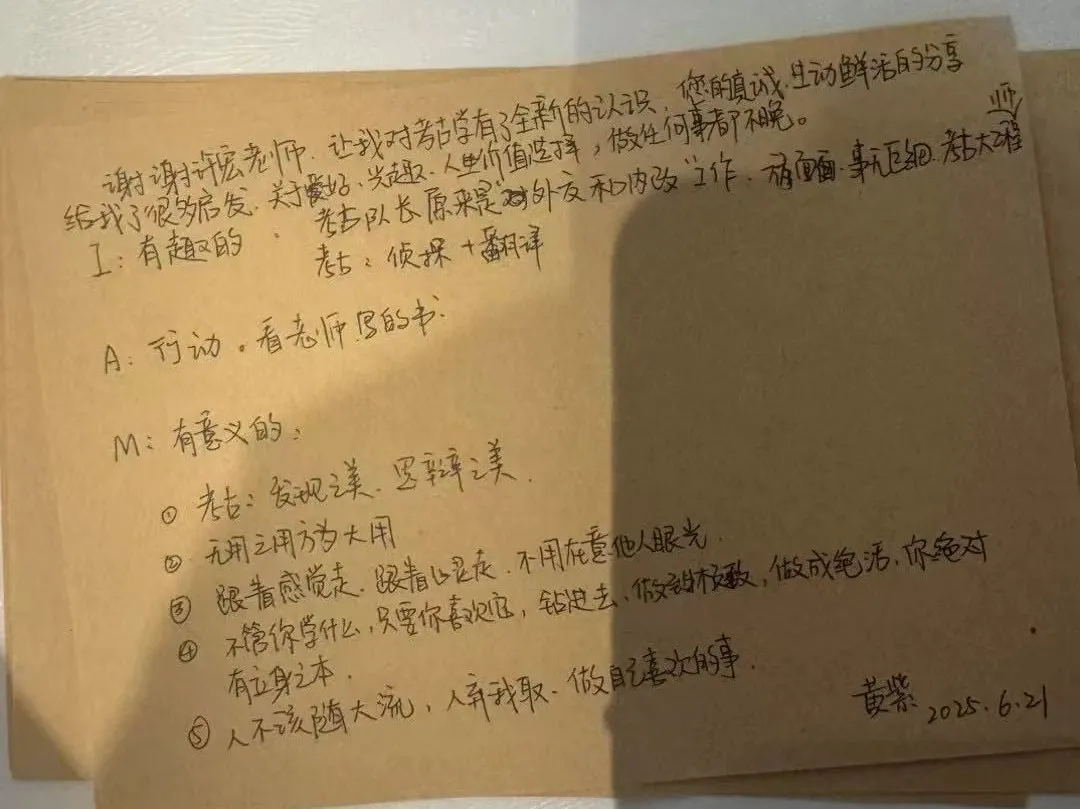 谢谢许宏老师.让我对考古学有了全新的认识.您的真诚.生动鲜活的分享
给我了很多启发.关于爱好、兴趣、人生价值选择,做任何事都不晚。
I:有趣的. 考古队长原来是"外交和内政"工作.方方面面.事无巨细.考古大工程师
考古:侦探+翻译
A:行动。看老师写的书.
M:有意义的:
① 考古:发现之美.思辩之美.
② 无用之用方为大用
③ 跟着感觉走.跟着心灵走.不用在意他人眼光.
④ 不管你学什么,只要你喜欢它,钻进去,做到极致,做成绝活,你绝对
有立身之本.
⑤ 人不该随大流,人弃我取.做自己喜欢的事.
黄紫 2025.6.21